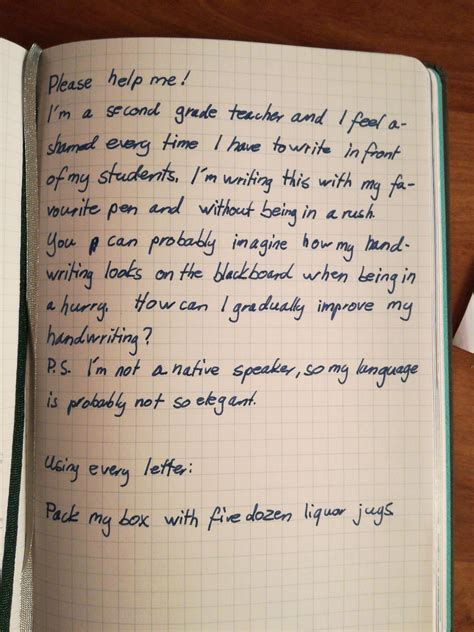 Please help me!
I'm a second grade teacher and I feel a-
shamed every time I have to write in front
of my students. I'm writing this with my fa-
vourite pen and without being in a rush.
You can probably imagine how my hand-
writing looks on the blackboard when being in
a hurry. How can I gradually improve my
handwriting?
P.S. I'm not a native speaker, so my language
is probably not so elegant.
Using every letter:
Pack my box with five dozen liquor jugs